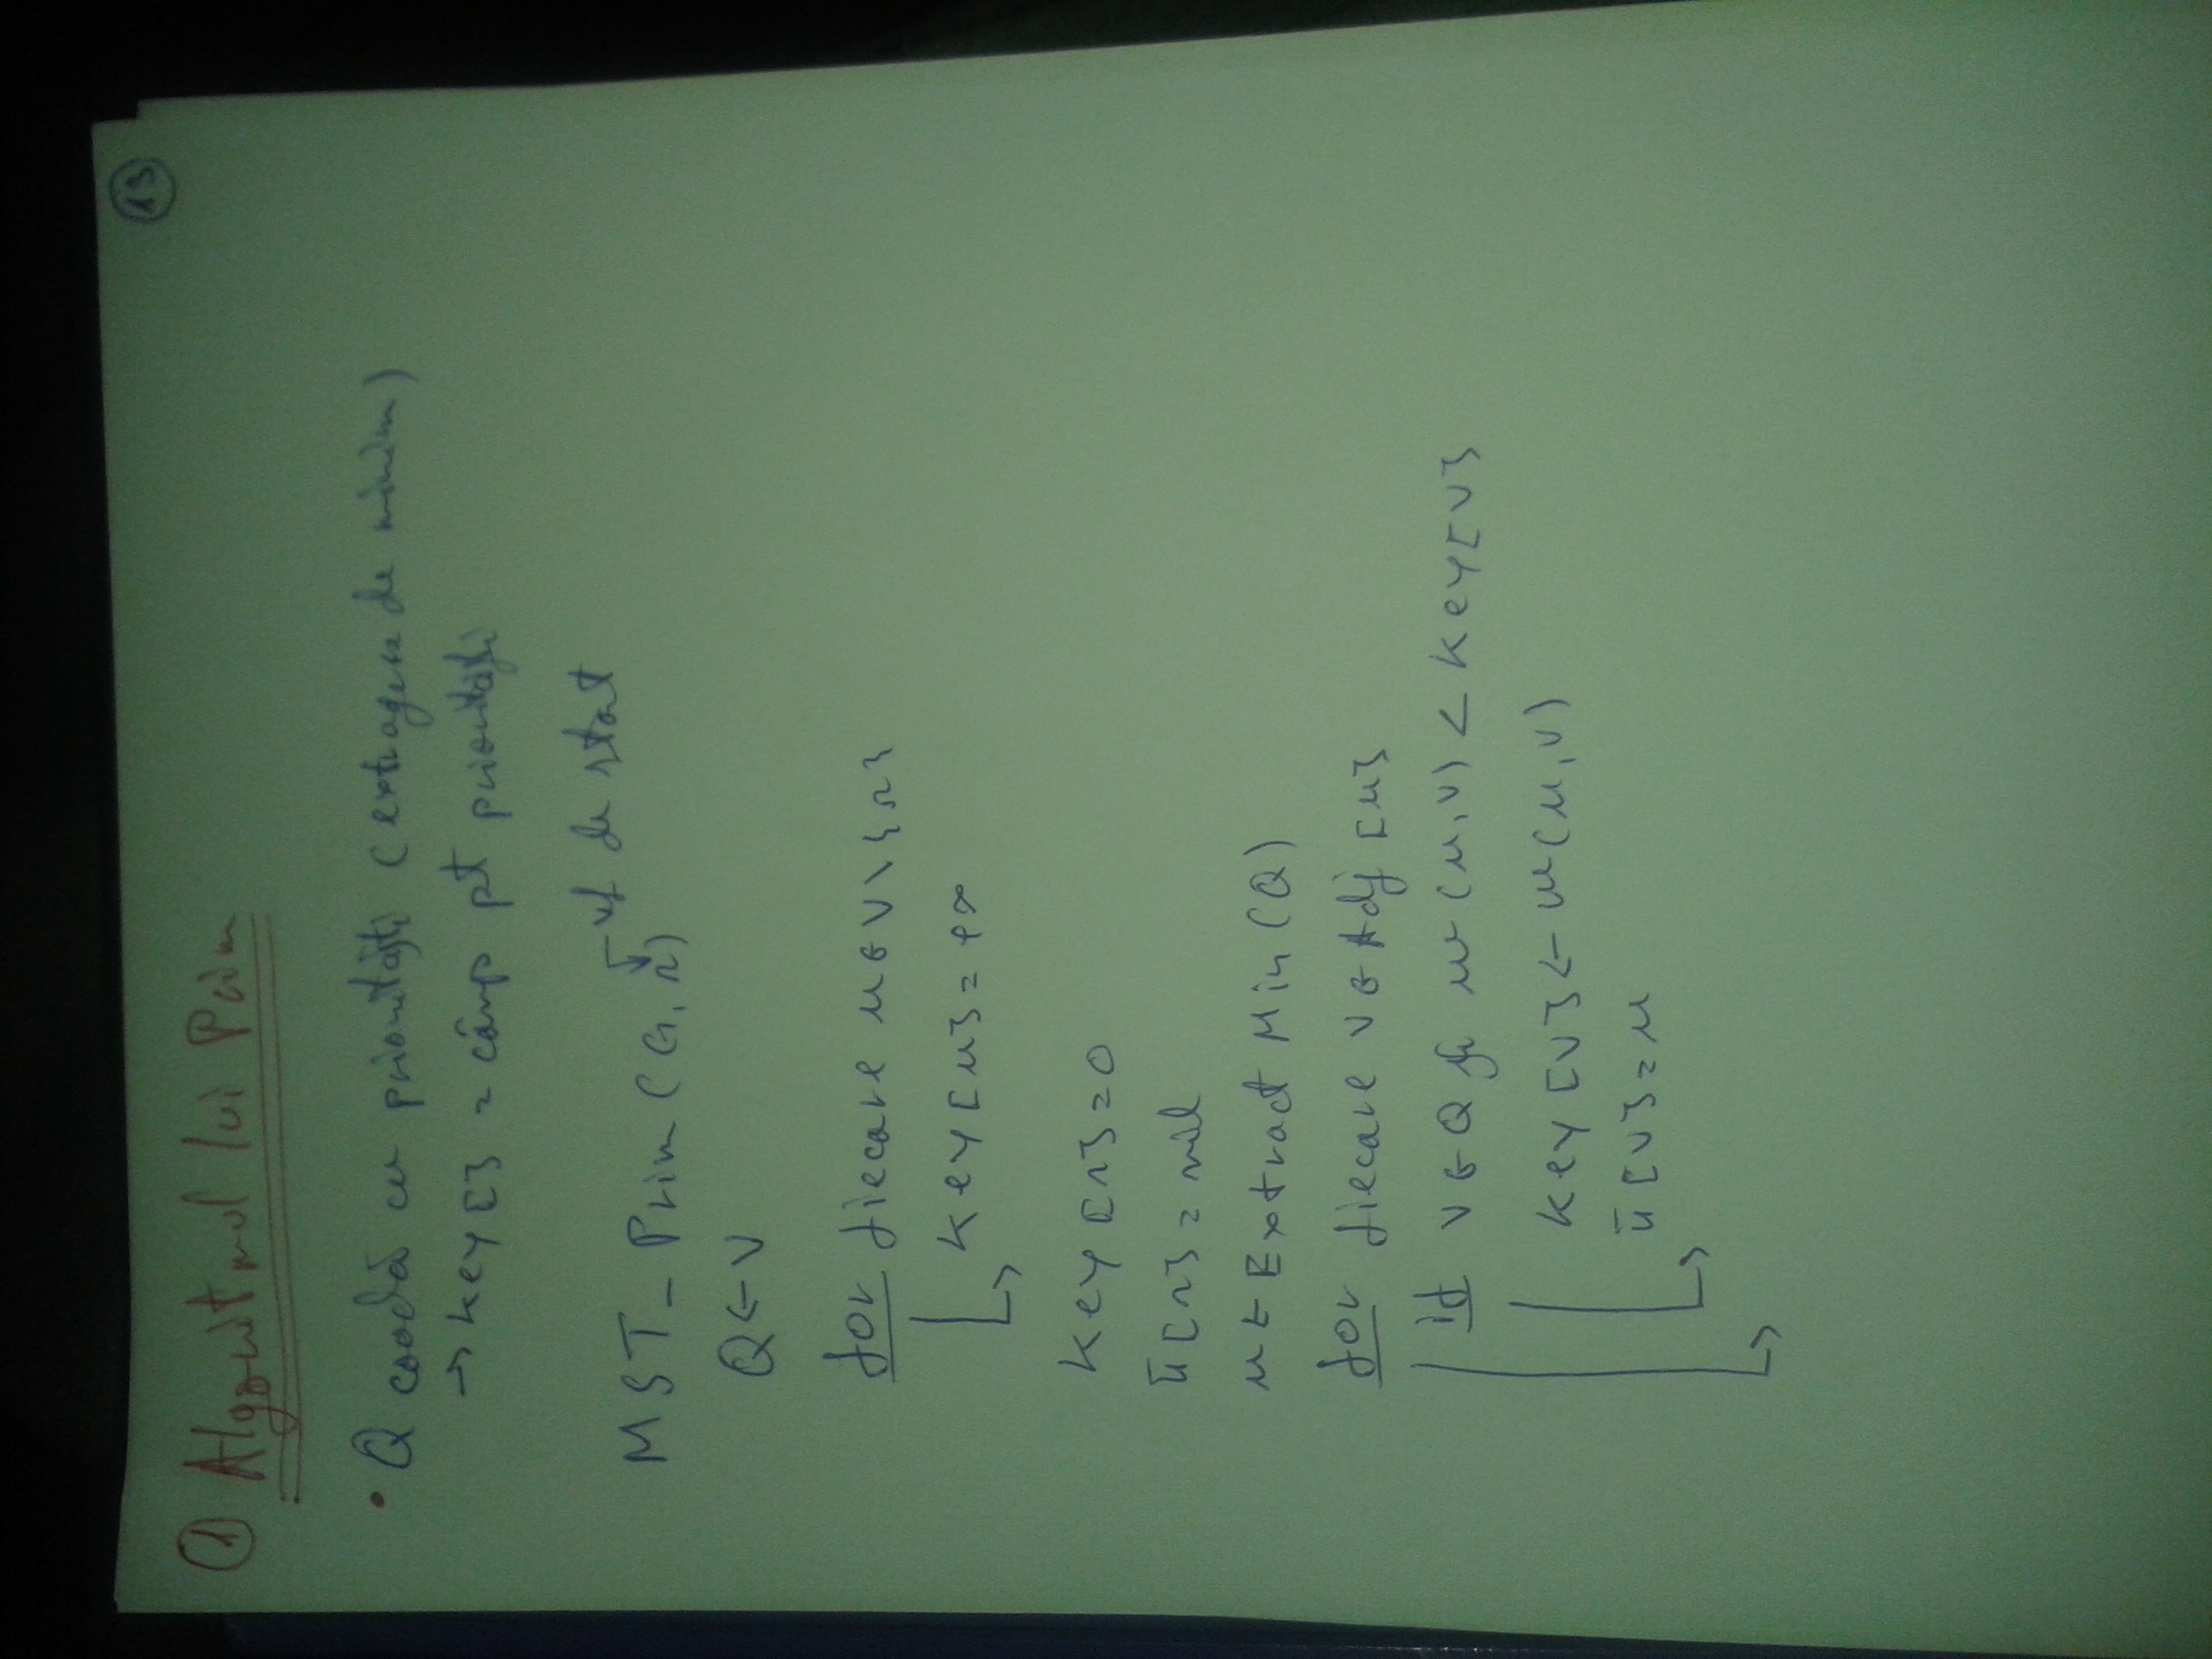 13
① Algoritmul lui Prim
• Q coadă cu priorități (extragere de minim)
→ key[] = câmp pt priorități
vf de start
MST_Prim(G, r)
Q ← V
for fiecare u ∈ V \ {r}
key[u] = +∞
key[r] = 0
π[r] = nil
u ← Extract Min(Q)
for fiecare v ∈ Adj[u]
if v ∈ Q și w(u,v) < key[v]
key[v] ← w(u,v)
π[v] = u